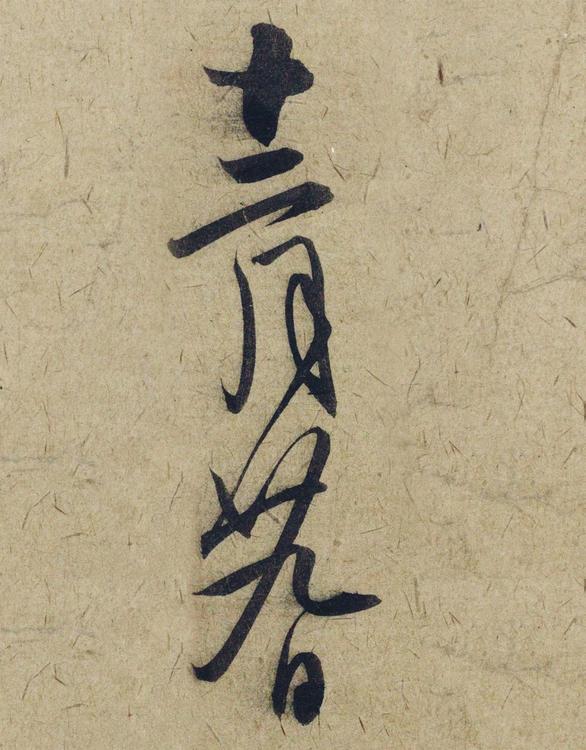 十二月廿九日